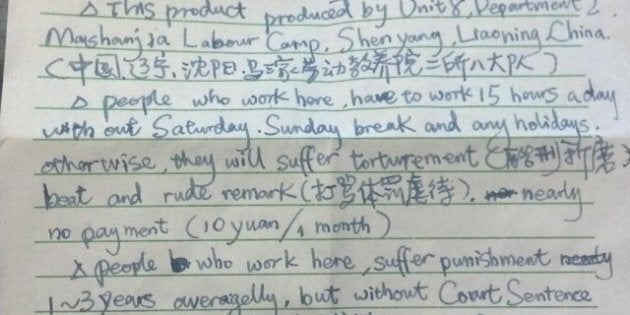 △ This product produced by Unit 8, Department 2
Mashanjia Labour Camp, Shen yang, Liaoning, China.
(中国,辽宁,沈阳,马三家劳动教养院二所八大队)
△ people who work here, have to work 15 hours a day
with out Saturday. Sunday break and any holidays.
otherwise, they will suffer torturement ( 折磨
beat and rude remark (打骂体罚虐待). nearly
no payment (10 yuan/1 month)
△ people who work here, suffer punishment
1~3 years averagelly, but without Court Sentence